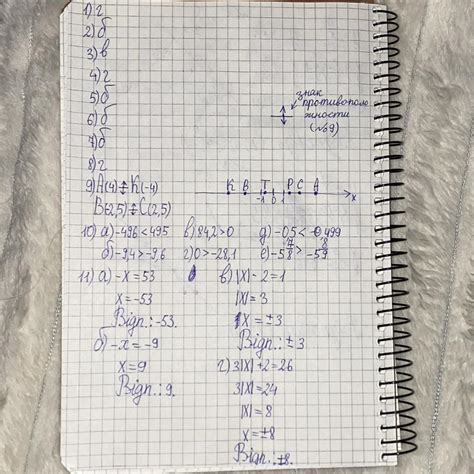 1) г
2) б
3) в
4) г
5) б
6) б
7) б
8) г
знак
протилежності
(№9)
9) A(4) ÷ K(-4)
B(-2,5) ÷ C(2,5)
K B T P C A
-1 0 1 x
10) а) -496 < 495 в) 84,2 > 0 д) -0,5 < -0,499
б) -9,4 > -9,6 г) 0 > -28,1 е) -5 7/8 > -5 8/9
11) а) -x = 53
x = -53
Відп.: -53.
б) -x = -9
x = 9
Відп.: 9.
в) |x| - 2 = 1
|x| = 3
x = ±3
Відп.: ±3
г) 3|x| + 2 = 26
3|x| = 24
|x| = 8
x = ±8
Відп.: ±8.